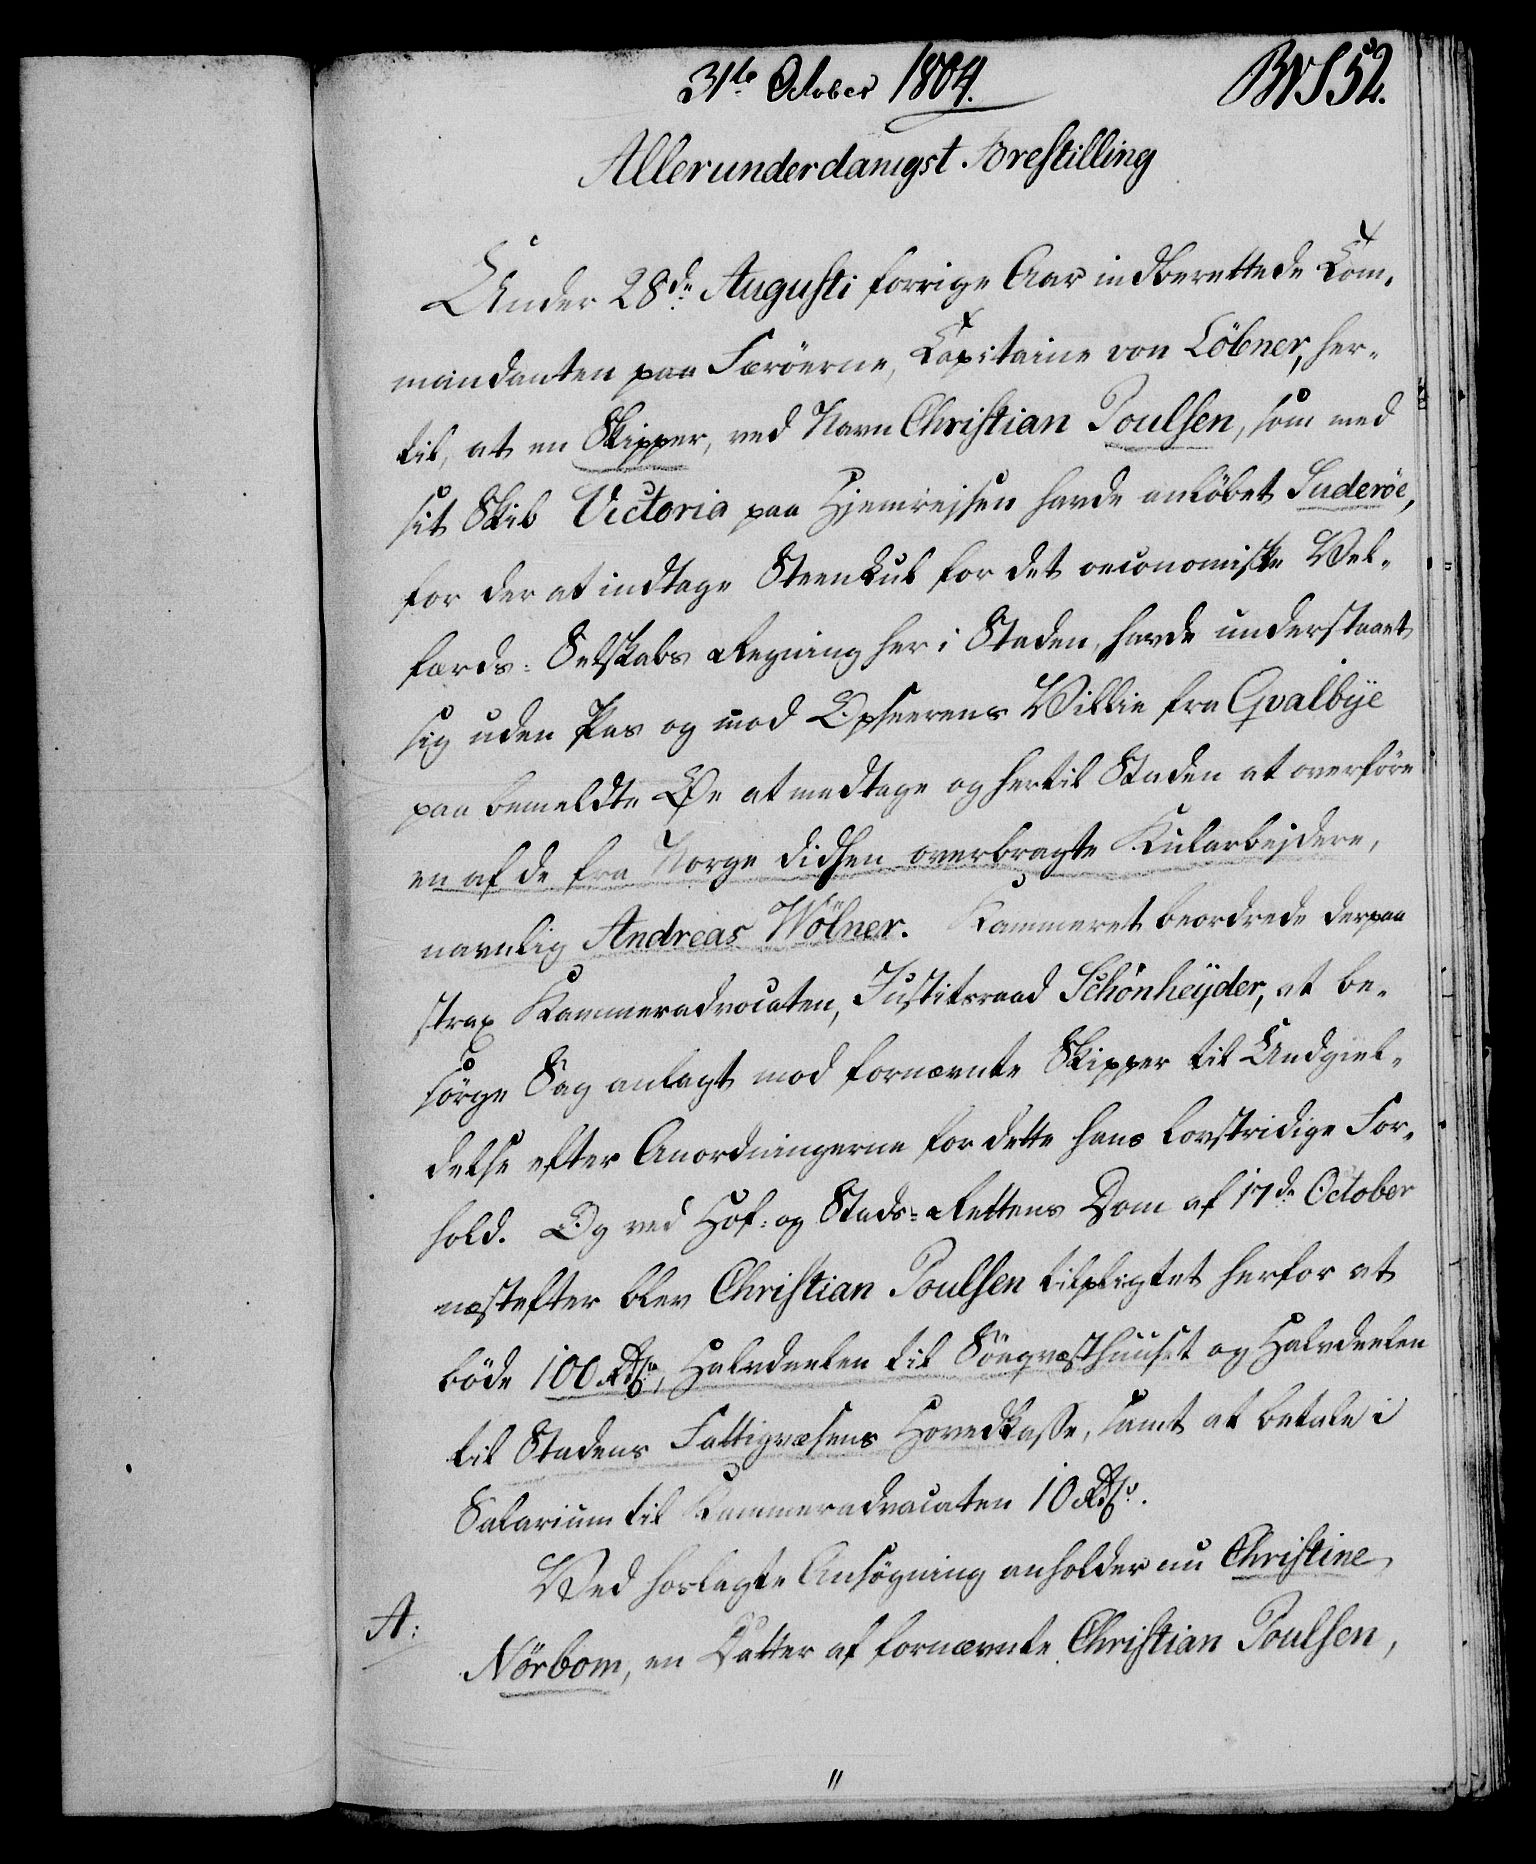 31te October 1804.
Allerunderdanigst Forestilling
Under 28de Augusti forrige Aar indberettede Com-
mandanten paa Færöerne, Capitaine von Löbner, her-
til, at en Skipper, ved Navn Christian Poulsen, som med
sit Skib Victoria paa Hjemrejsen havde anlöbet Suderöe,
for der at indtage Steenkul for det oeconomiske Vel-
færds-Selskabs Regning her i Staden, havde understaaet
sig uden Pas og mod Opseerens Villie fra Qvalbye
paa bemeldte Øe at medtage og hertil Staden at overföre
en af de fra Norge didhen overbragte Kularbejdere,
navnlig Andreas Wölner. Kammeret beordrede derpaa
strax Kammeradvocaten, Justitsraad Schönheyder, at be-
sörge Sag anlagt mod fornævnte Skipper til Undgiel-
delse efter Anordningerne for dette hans lovstridige For-
hold. Og ved Hof- og Stads-Rettens Dom af 17de October
næstefter blev Christian Poulsen tilpligtet herfor at
böde 100 Rdlr, Halvdeelen til Söeqvæsthuuset og Halvdeelen
til Stadens Fattigvæsens Hovedkasse, samt at betale i
Salarium til Kammeradvocaten 10 Rdlr.
Ved hoslagte Ansögning anholder nu Christine
A:
Nörbom, en Datter af fornævnte Christian Poulsen,